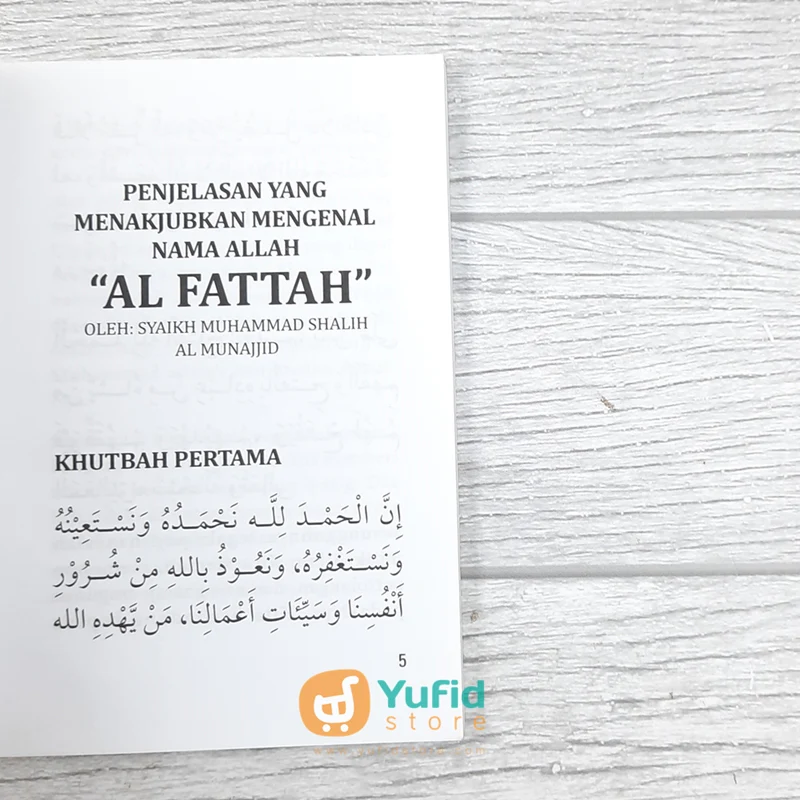 PENJELASAN YANG
MENAKJUBKAN MENGENAL
NAMA ALLAH
“AL FATTAH”
OLEH: SYAIKH MUHAMMAD SHALIH
AL MUNAJJID
KHUTBAH PERTAMA
إِنَّ الْحَمْدَ لِلَّـهِ نَحْمَدُهُ وَنَسْتَعِيْنُهُ
وَنَسْتَغْفِرُهُ، وَنَعُوْذُ بِاللهِ مِنْ شُرُوْرِ
أَنْفُسِنَا وَسَيِّئَاتِ أَعْمَالِنَا، مَنْ يَّهْدِهِ الله
5
Yufid
store